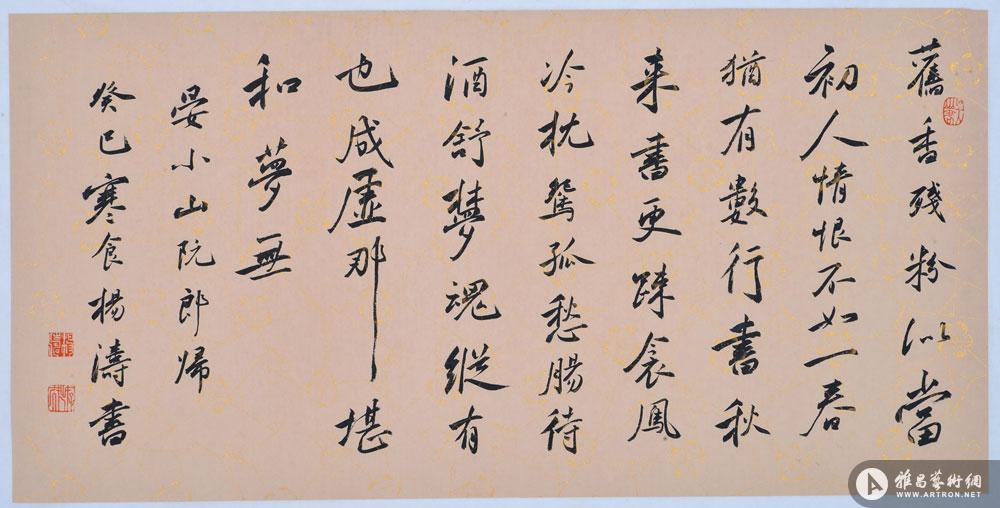 舊香殘粉似當
初人情恨不如一春
猶有數行書秋
来書更踈衾鳳
冷枕鴛孤愁腸待
酒舒夢魂縱有
也成虛那堪
和夢無
晏小山阮郎歸
癸巳寒食楊濤書
雅昌藝術網
WWW.ARTRON.NET